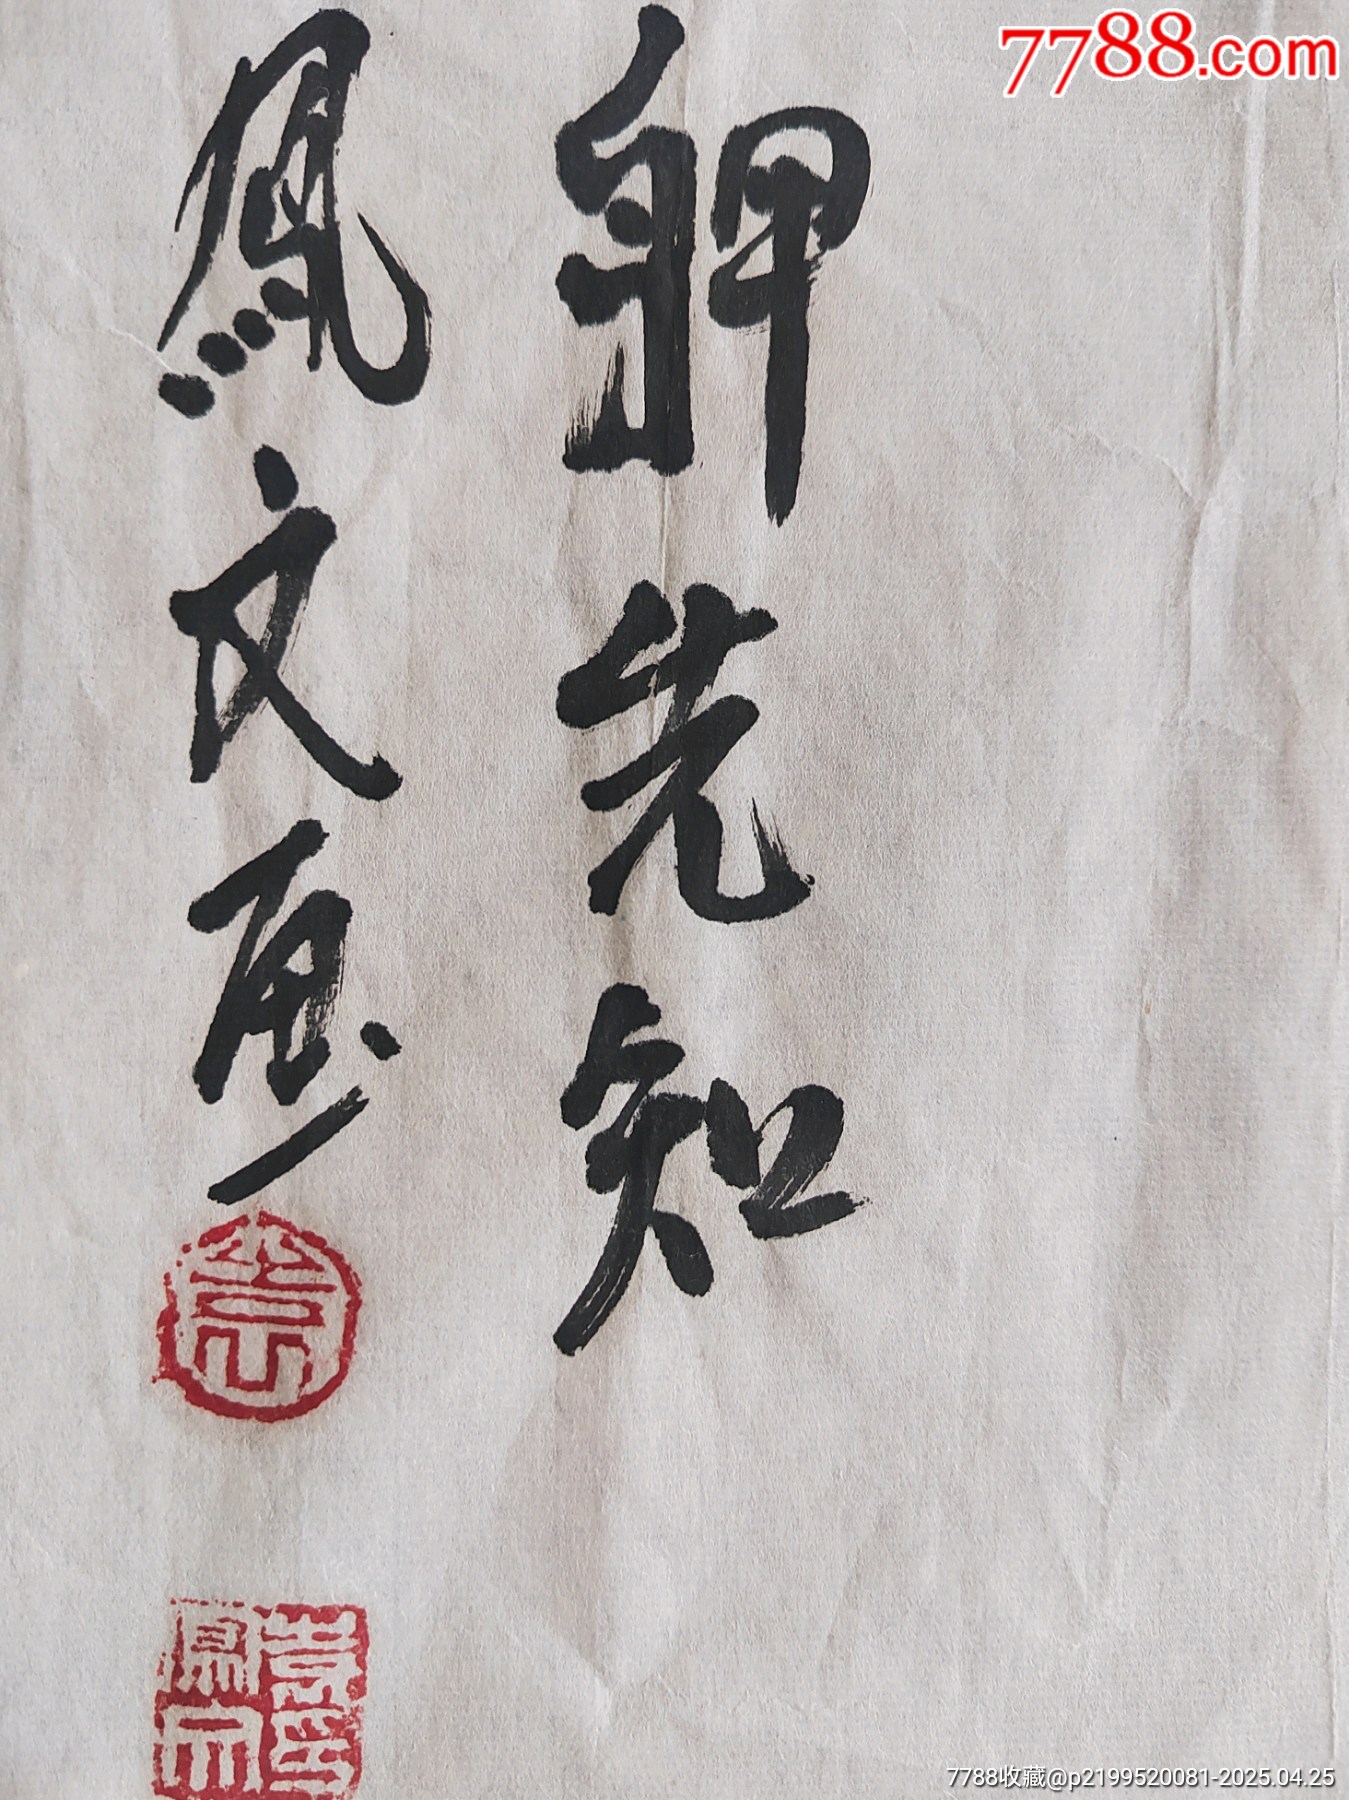 7788.com
鴨先知
鳳文画
7788收藏@p2199520081-2025.04.25